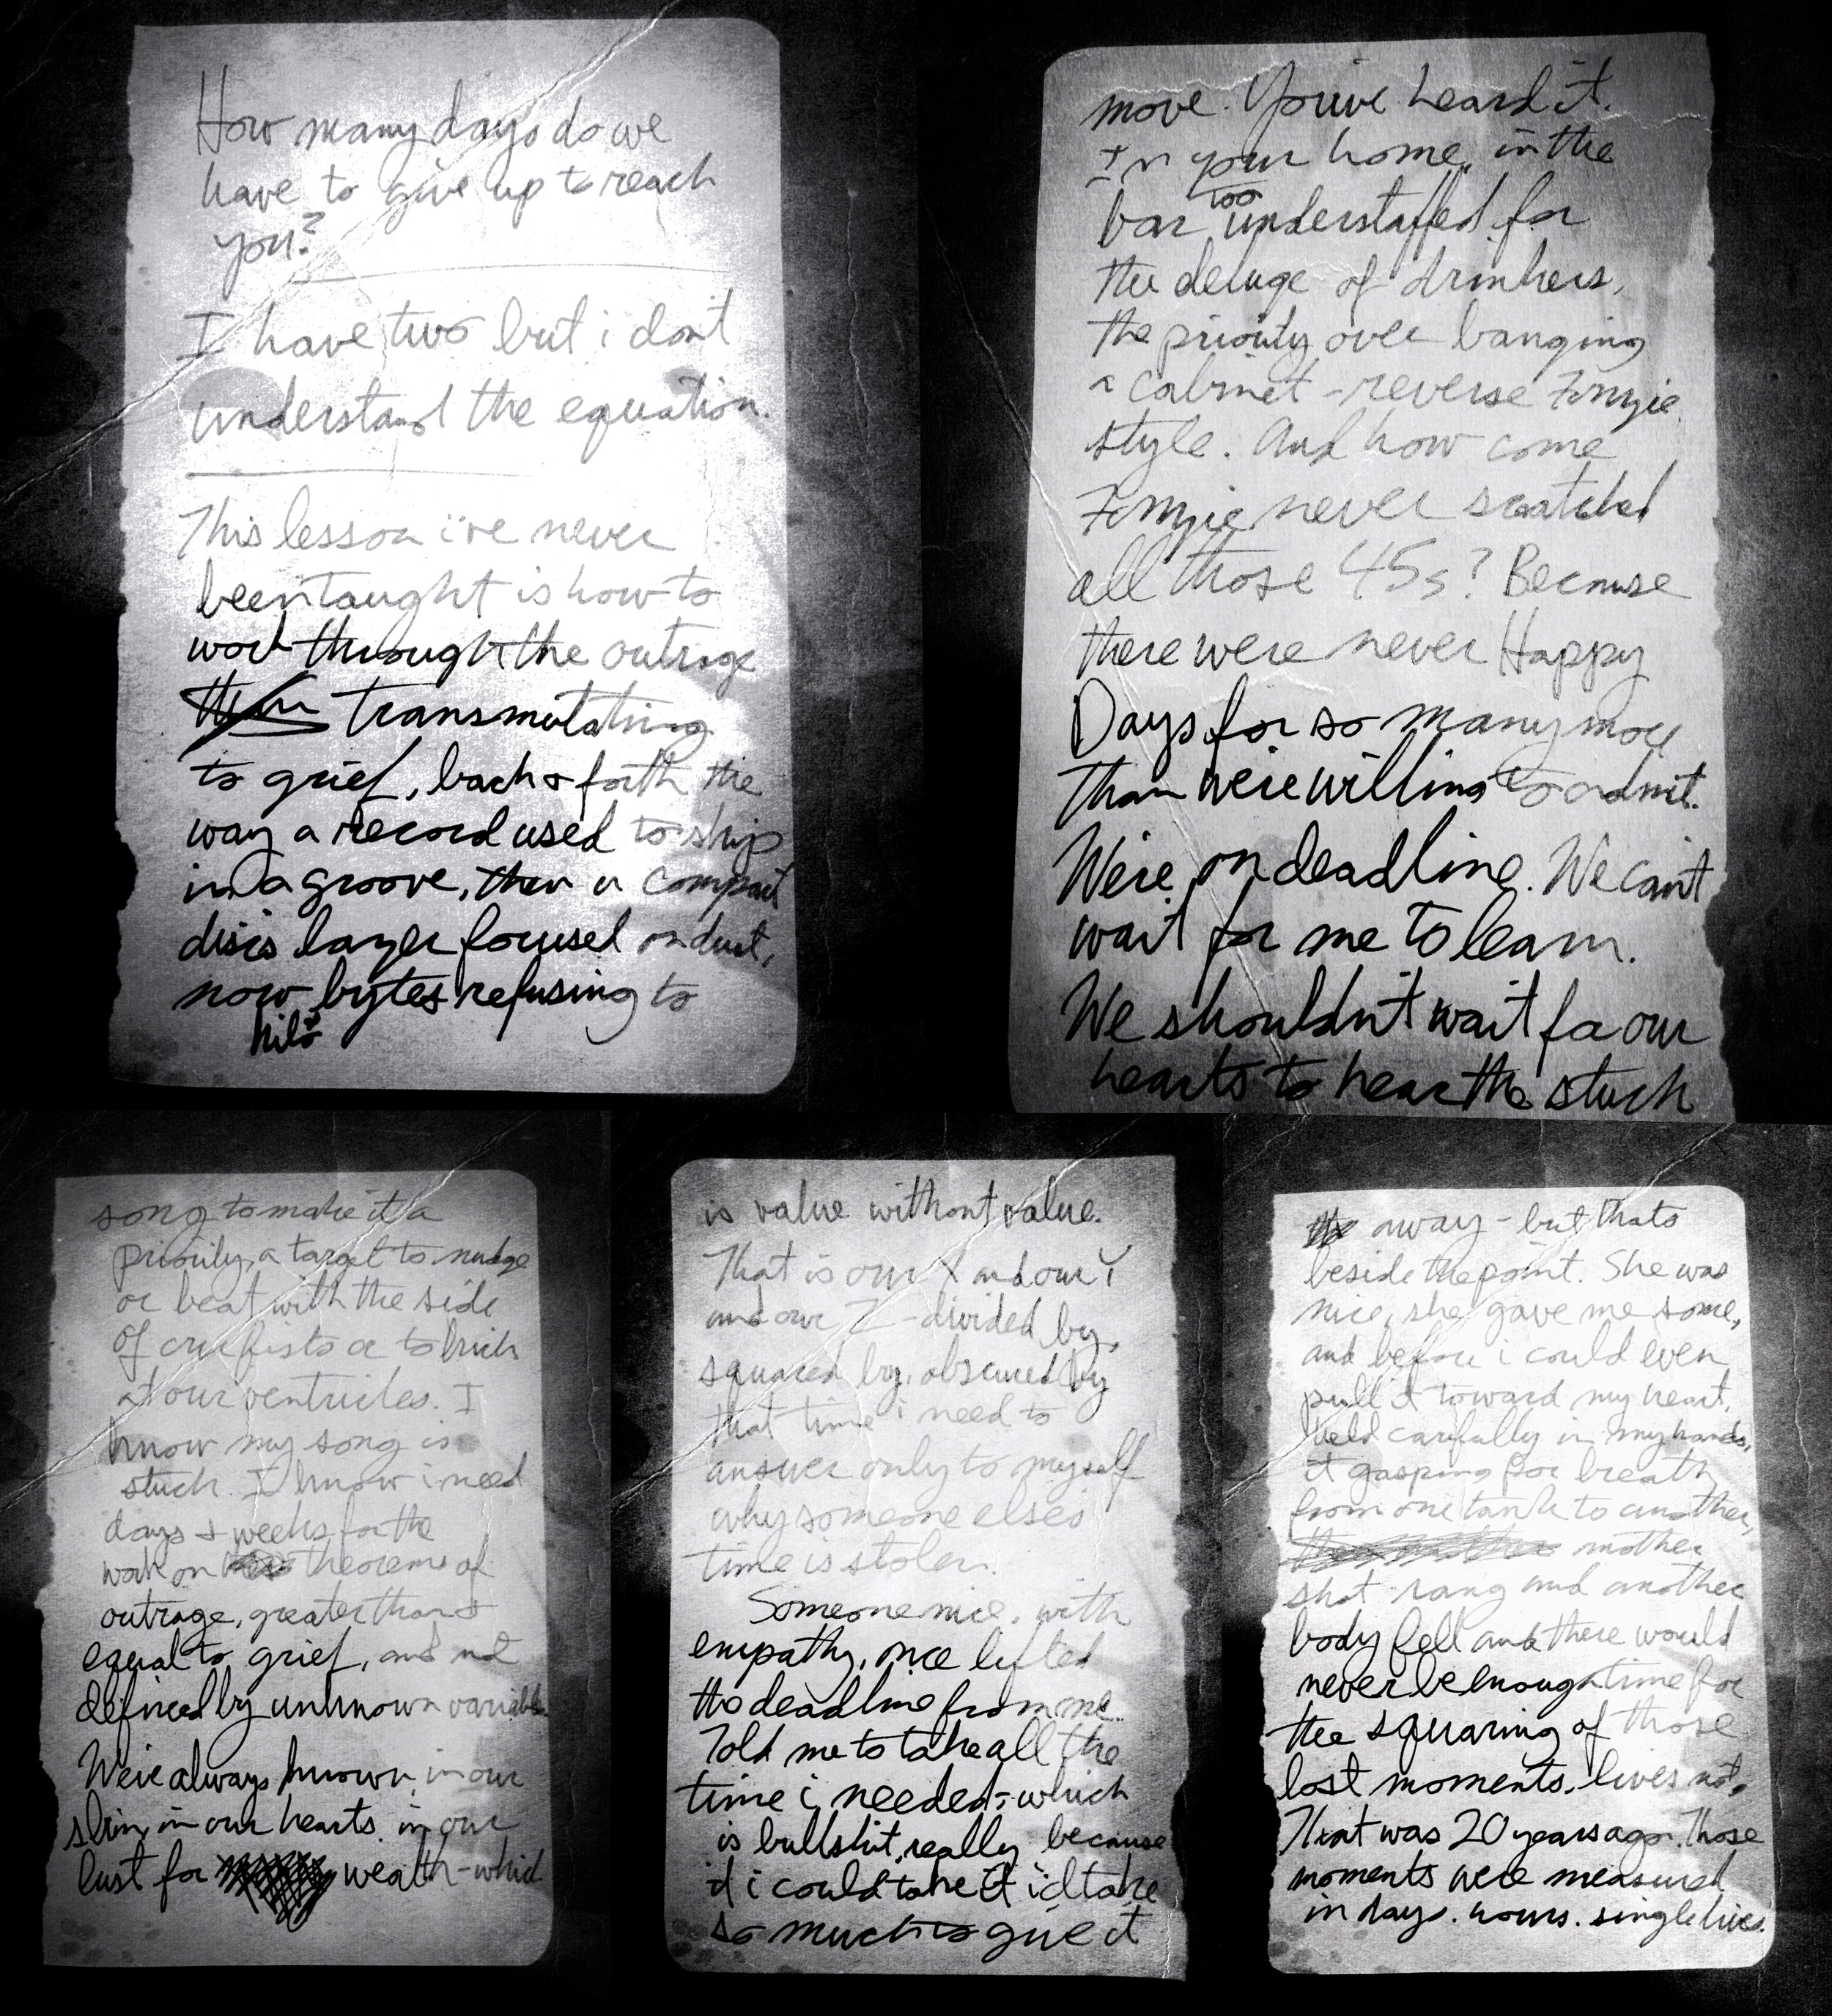 How many days do we
have to give up to reach
you?
I have two but i don't
understand the equation.
This lesson i've never
been taught is how to
work through the outrage
transmutating
to grief, back & forth the
way a record used to skip
in a groove, then a compact
discs lazer focused on dust,
now bytes refusing to
kilo
move. You've heard it.
In your home, in the
too
bar understaffed for
the deluge of drinkers,
the priority over banging
a cabinet - reverse Fonzie
style. And how come
Fonzie never scratched
all those 45s? Because
there were never Happy
Days for so many more
than we're willing to admit.
We're on deadline. We can't
wait for me to learn.
We shouldn't wait for our
hearts to hear the stuck
song to make it a
priority, a target to nudge
or beat with the side
of our fists or to kick
at our ventricles. I
know my song is
stuck. I know i need
days & weeks for the
work on theorems of
outrage, greater than &
equal to grief, and not
defined by unknown variables.
We've always known, in our
skin, in our hearts, in our
lust for wealth - which
is value without value.
That is our X and our Y
and our Z - divided by,
squared by, obscured by
that time i need to
answer only to myself
why someone else's
time is stolen.
Someone nice, with
empathy, once lifted
the deadline from me.
Told me to take all the
time i needed, - which
is bullshit, really because
if i could take it i'd take
so much to give it
away - but that's
beside the point. She was
nice, she gave me some,
and before i could even
pull it toward my heart,
held carefully in my hands,
it gasping for breath
from one tank to another,
another
shot rang and another
body fell and there would
never be enough time for
the squaring of those
lost moments. lives not.
That was 20 years ago. Those
moments were measured
in days. hours. single lives.